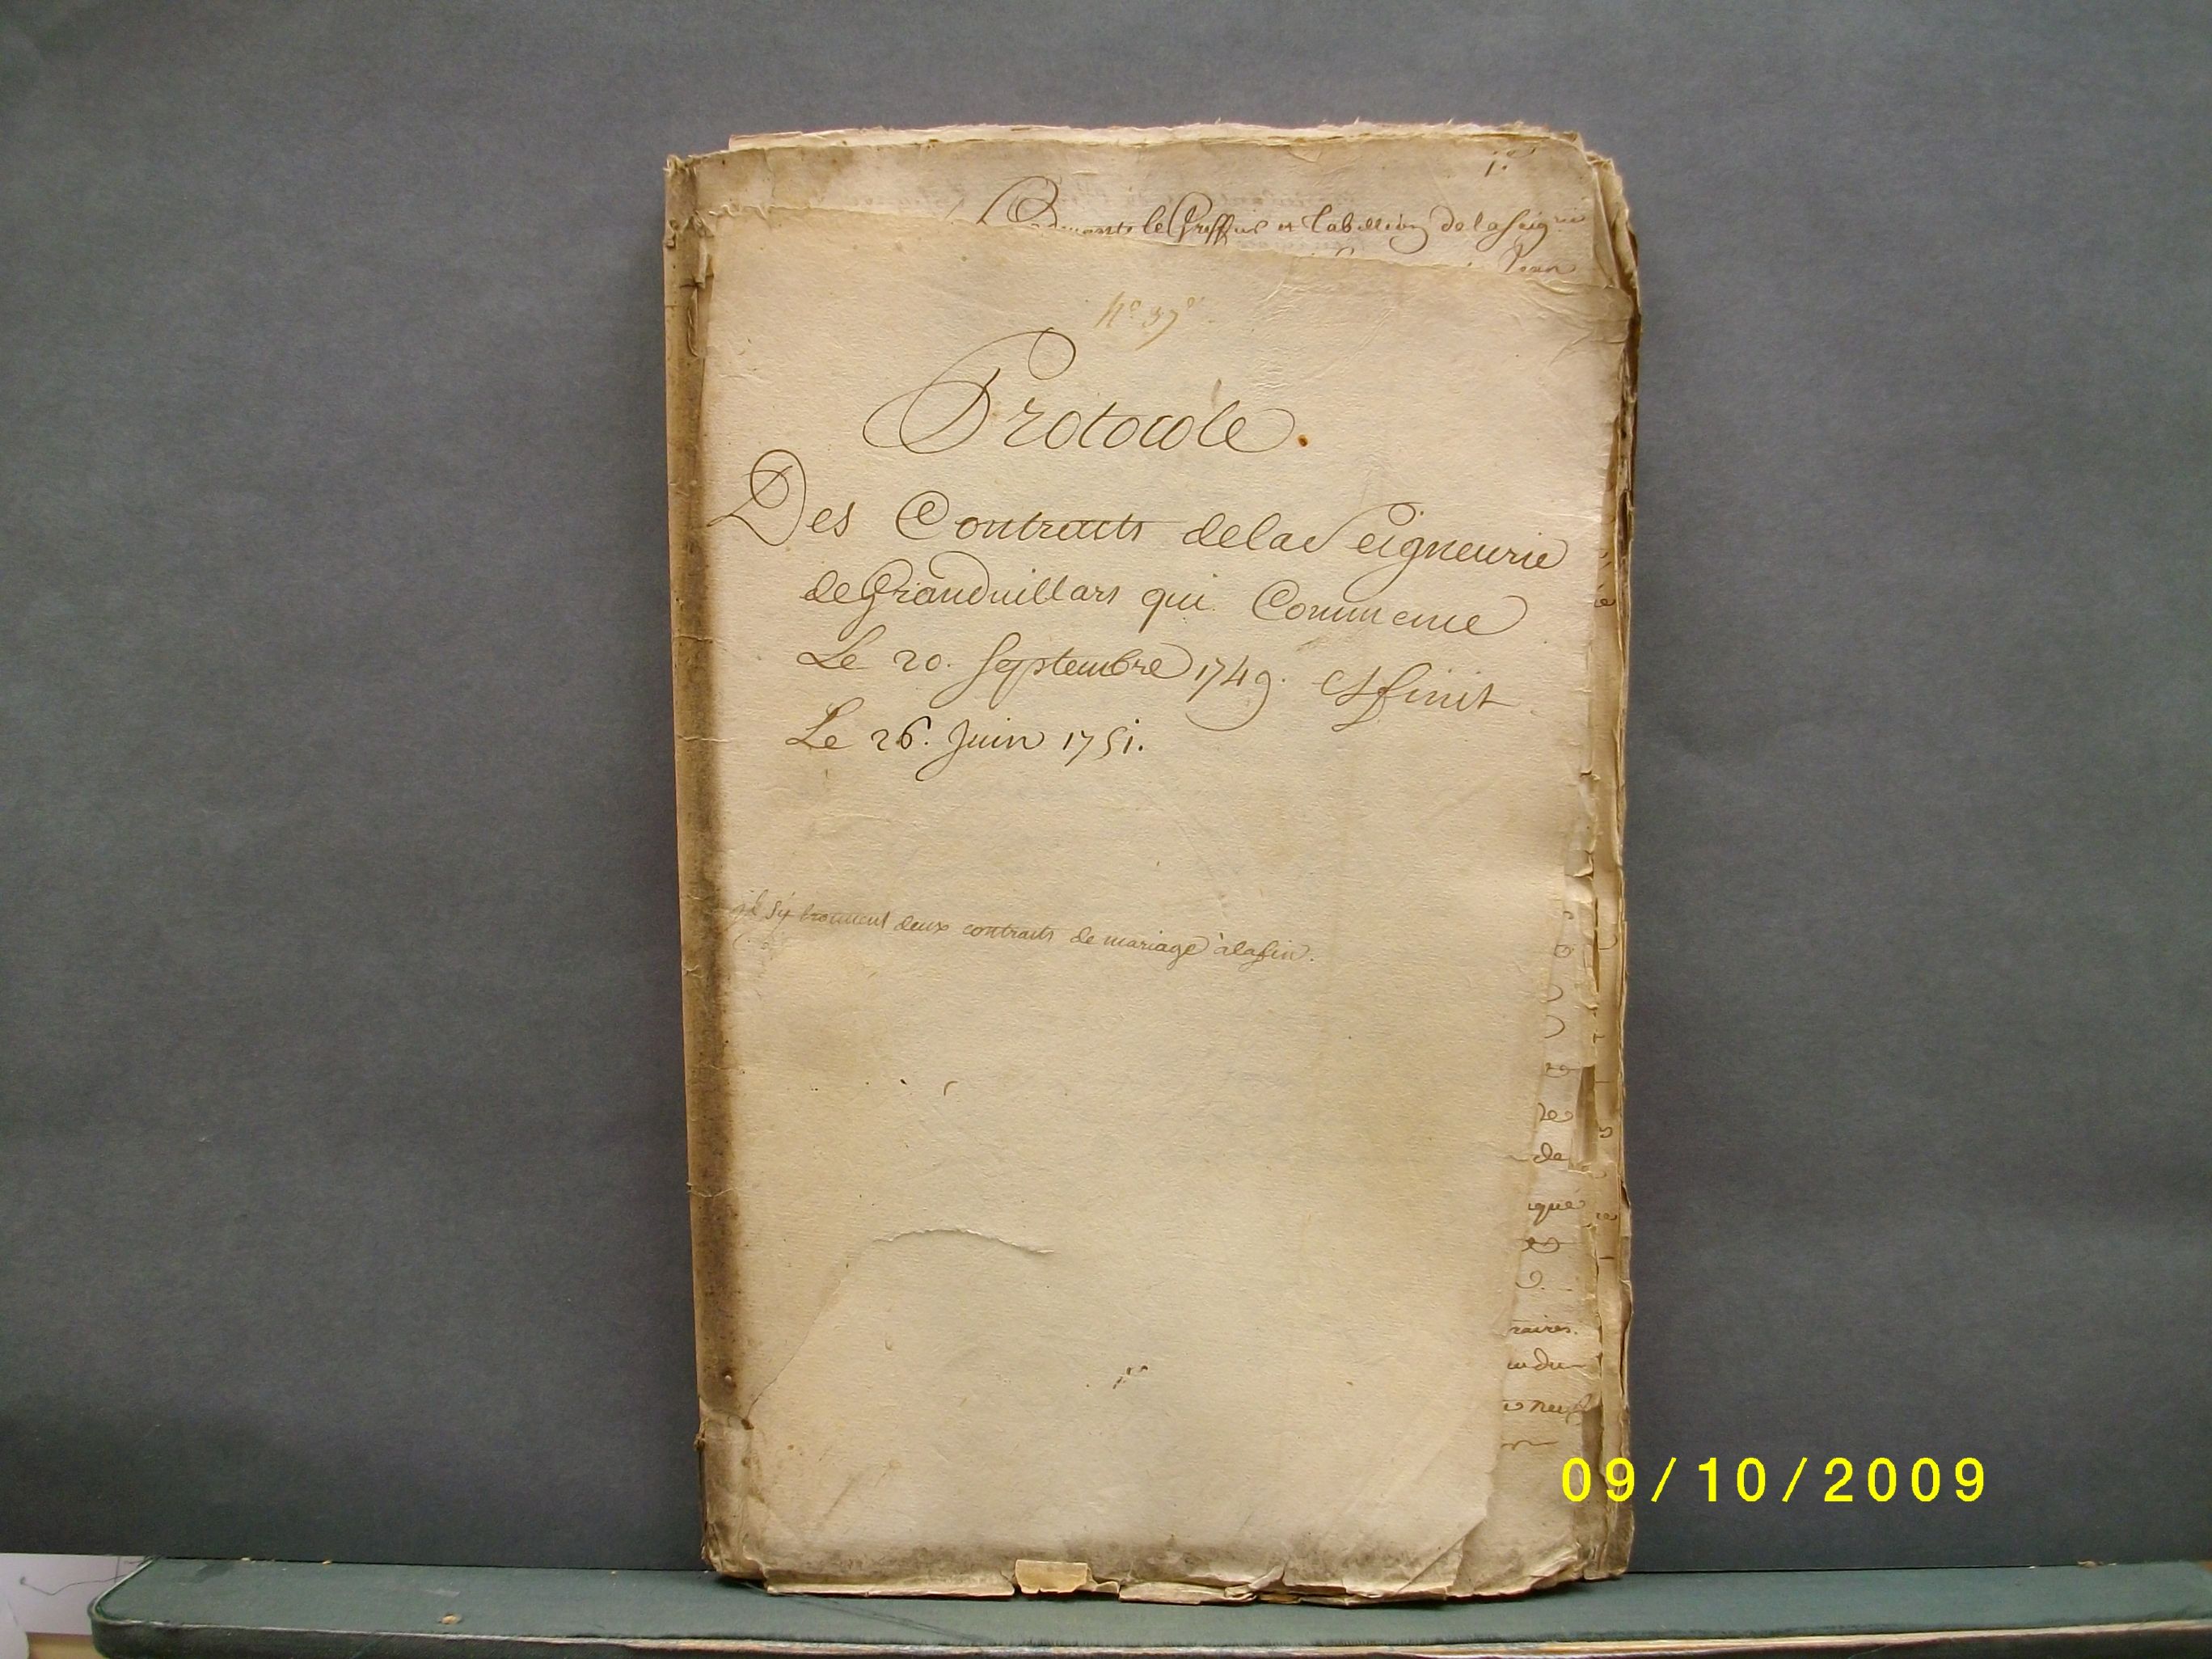 1.
le Greffier et Tabellion de la Seig.rie
N.o 37
Protocole.
Des Contracts de la Seigneurie
de Granduillars qui Commence
Le 20. Septembre 1749. Et finit
Le 26. Juin 1751.
il sÿ trouuent deux contracts de mariage à la fin.
re
de
que
raires.
neuf
09/10/2009